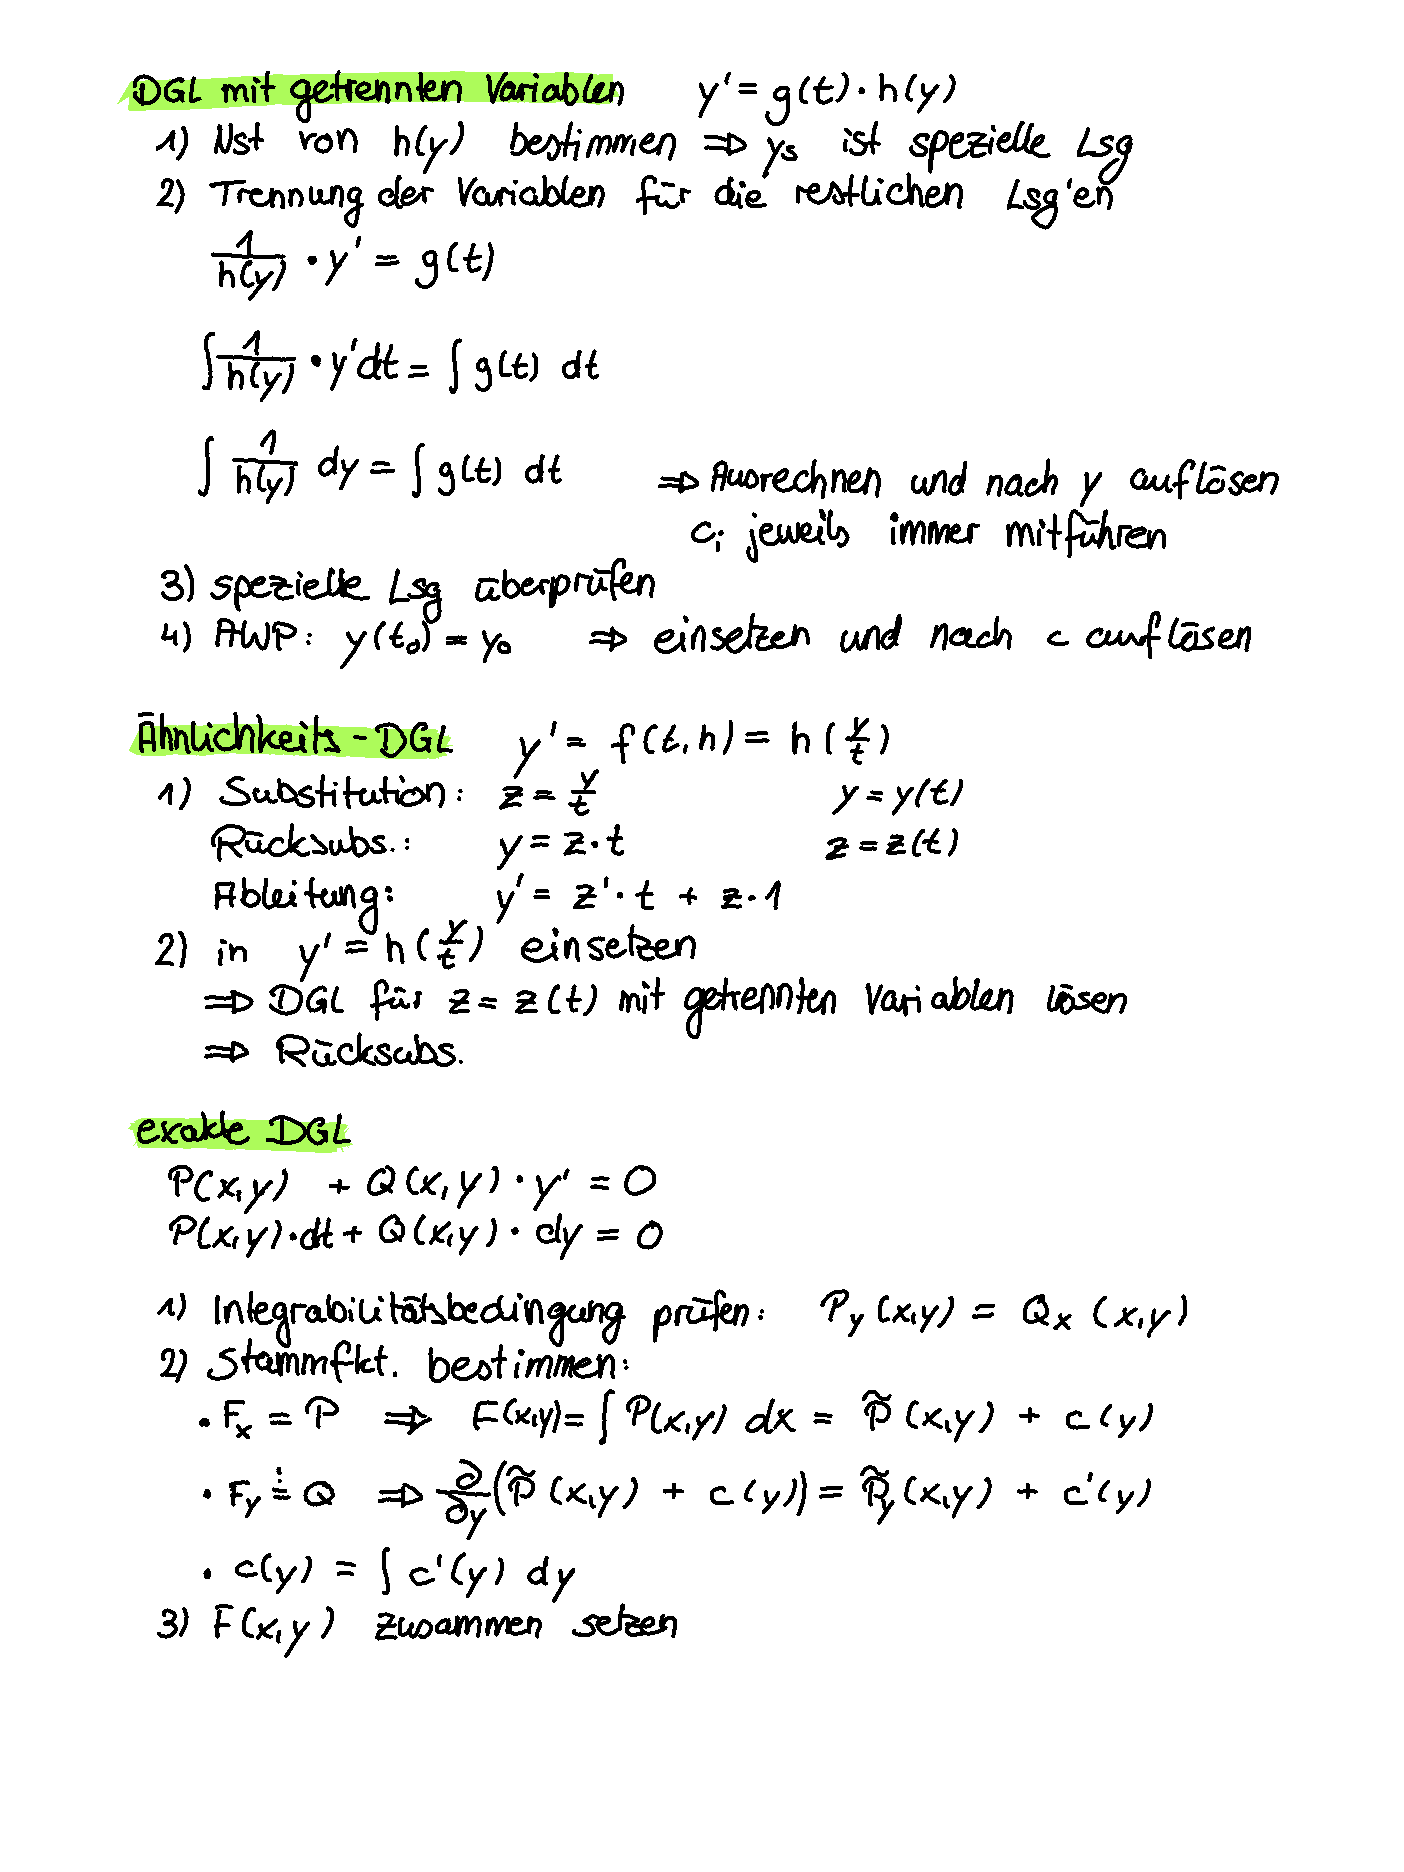 DGL mit getrennten Variablen y' = g(t) · h(y)
1) Nst von h(y) bestimmen ⇒ ys ist spezielle Lsg
2) Trennung der Variablen für die restlichen Lsg'en
1/h(y) · y' = g(t)
∫ 1/h(y) · y'dt = ∫ g(t) dt
∫ 1/h(y) dy = ∫ g(t) dt ⇒ Ausrechnen und nach y auflösen
cᵢ jeweils immer mitführen
3) spezielle Lsg überprüfen
4) AWP: y(t₀) = y₀ ⇒ einsetzen und nach c auflösen
Ähnlichkeits-DGL y' = f(t,h) = h(y/t)
1) Substitution: z = y/t y = y(t)
Rücksubs.: y = z·t z = z(t)
Ableitung: y' = z'·t + z·1
2) in y' = h(y/t) einsetzen
⇒ DGL für z = z(t) mit getrennten Variablen lösen
⇒ Rücksubs.
exakte DGL
P(x,y) + Q(x,y) · y' = 0
P(x,y)·dt + Q(x,y) · dy = 0
1) Integrabilitätsbedingung prüfen: P_y(x,y) = Q_x(x,y)
2) Stammfkt. bestimmen:
· F_x = P ⇒ F(x,y) = ∫ P(x,y) dx = P̃(x,y) + c(y)
· F_y ≐ Q ⇒ ∂/∂y (P̃(x,y) + c(y)) = P̃_y(x,y) + c'(y)
· c(y) = ∫ c'(y) dy
3) F(x,y) zusammen setzen